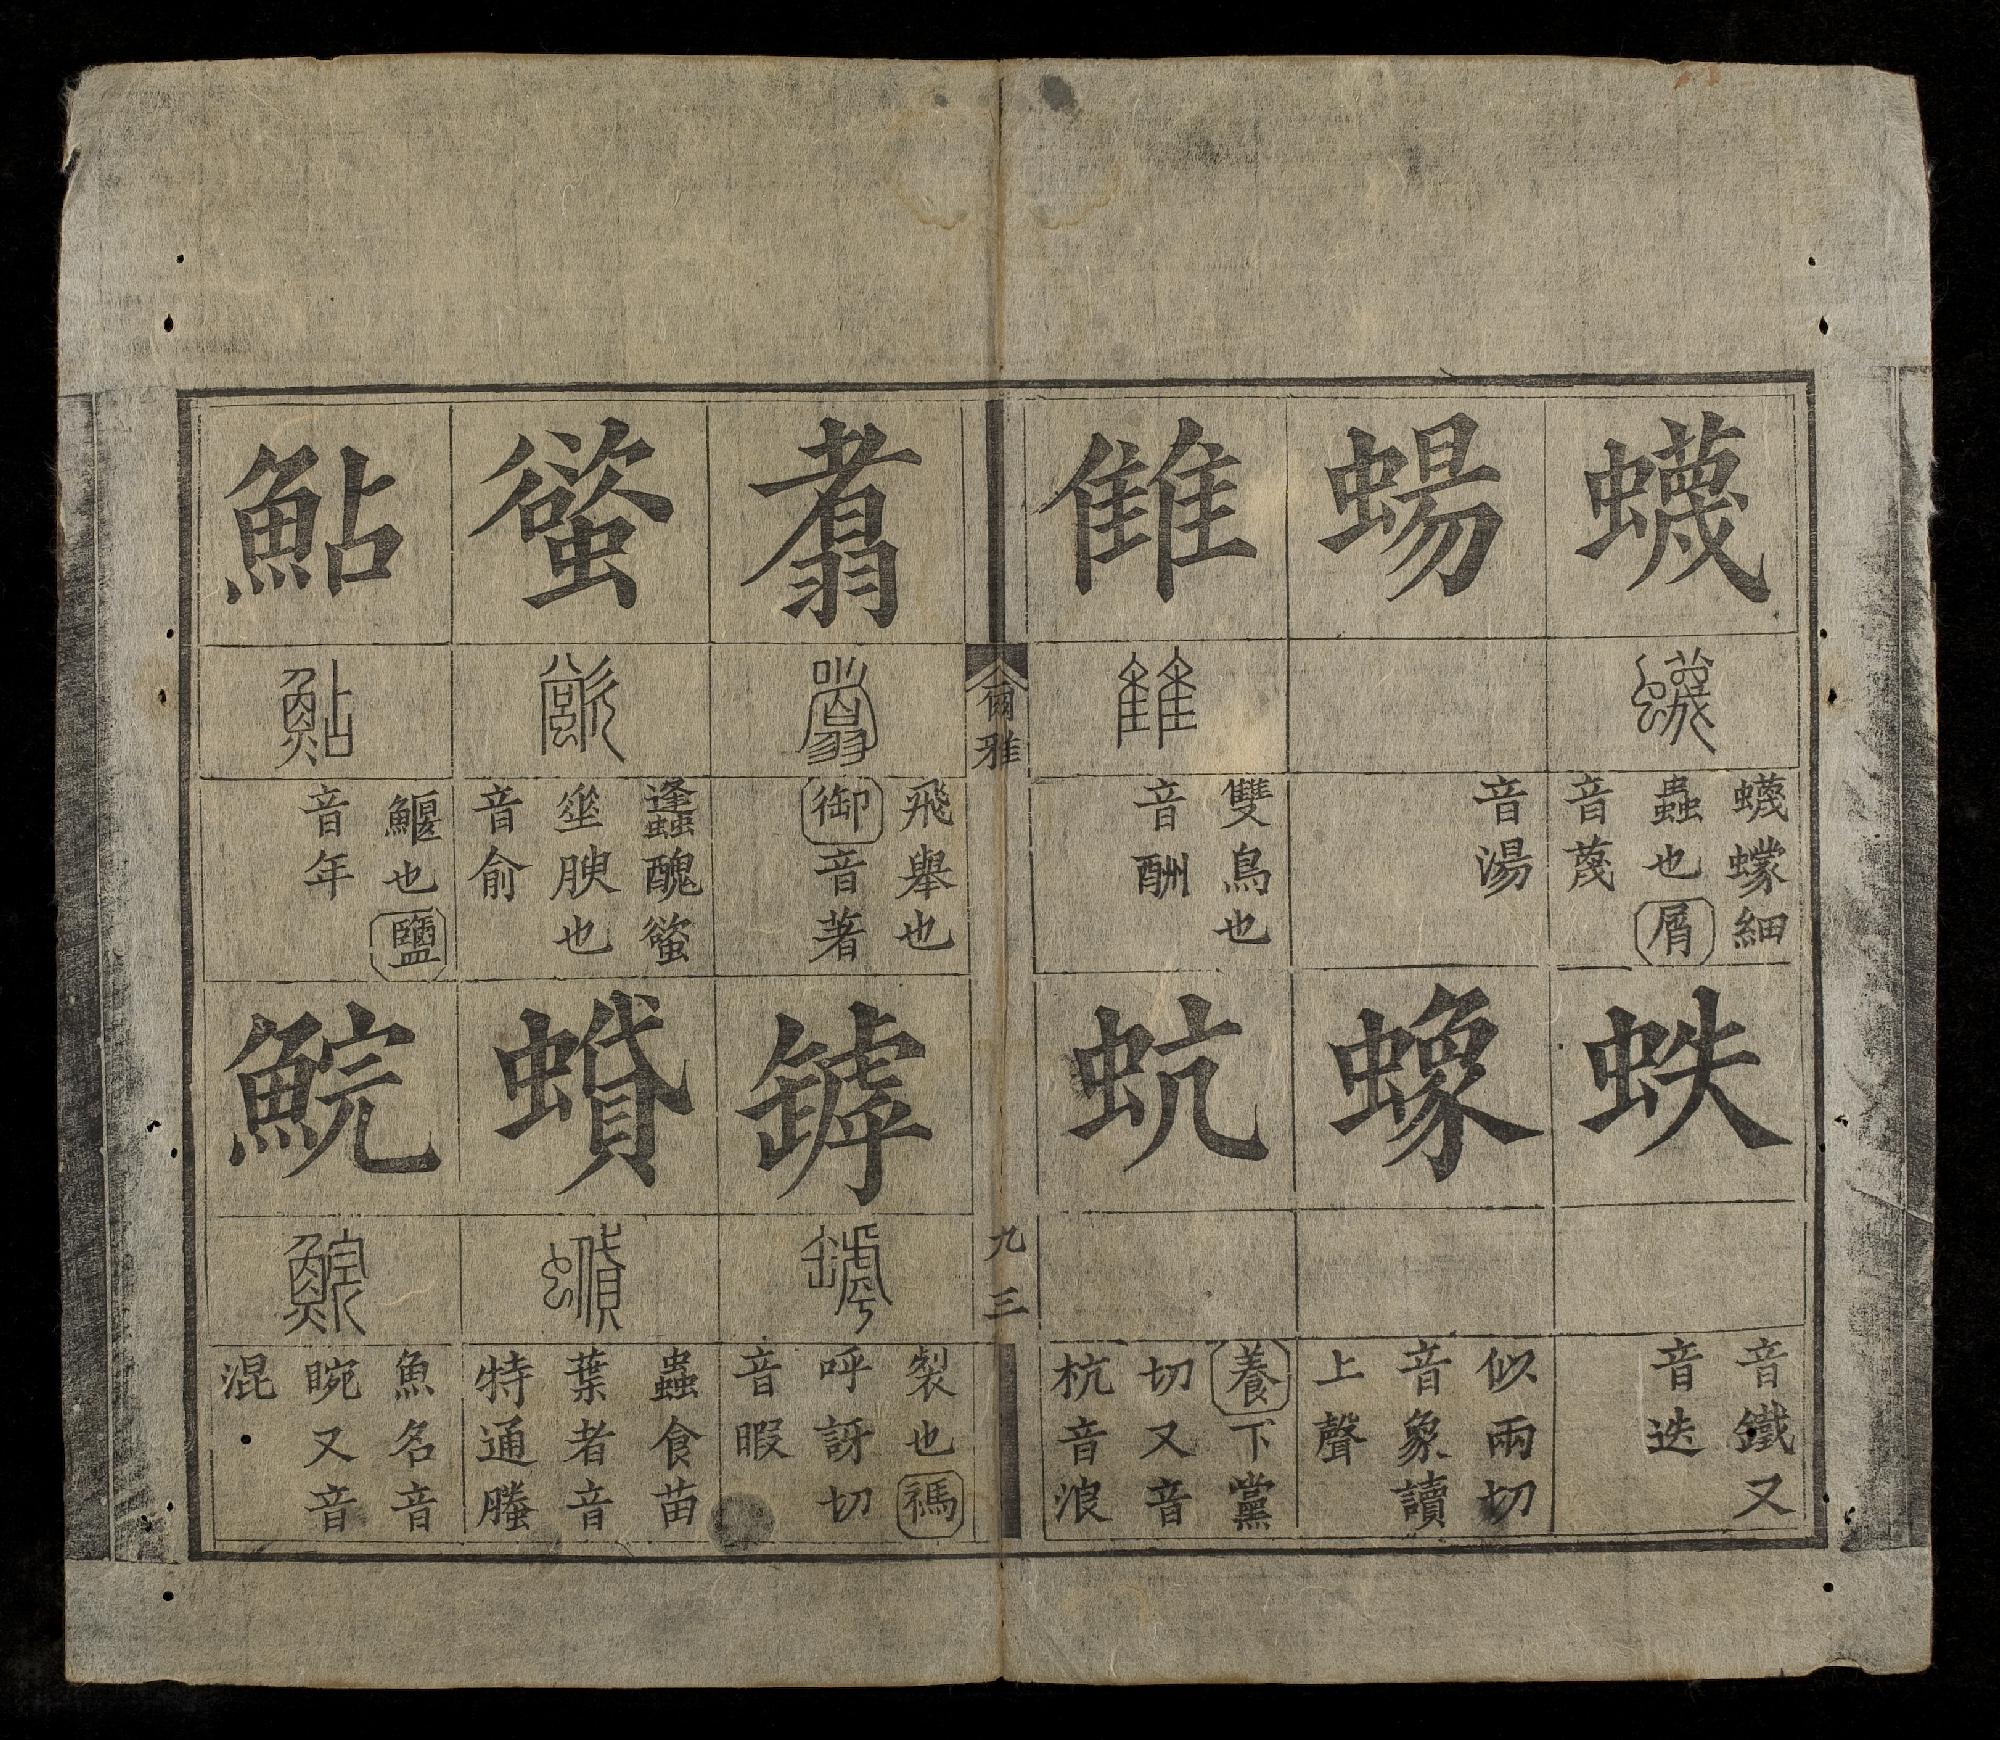 蠛
蠛
蠛蠓細
蟲也屑
音蔑
蛈
音鐵又
音迭
蝪
音湯
蟓
似兩切
音象讀
上聲
雔
雔
雙鳥也
音酬
蚢
養下黨
切又音
杭音浪
爾雅
九三
翥
翥
飛舉也
御音著
罅
罅
製也禡
呼訝切
音暇
螸
螸
蠭醜螸
垂腴也
音俞
蟘
蟘
蟲食苗
葉者音
特通螣
鮎
鮎
鰋也鹽
音年
鯇
鯇
魚名音
睕又音
混